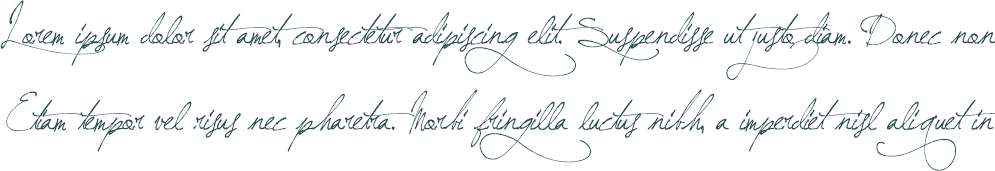 Lorem ipsum dolor sit amet, consectetur adipiscing elit. Suspendisse ut justo diam. Donec non
Etiam tempor vel risus nec pharetra. Morbi fringilla luctus nibh, a imperdiet nisl aliquet in